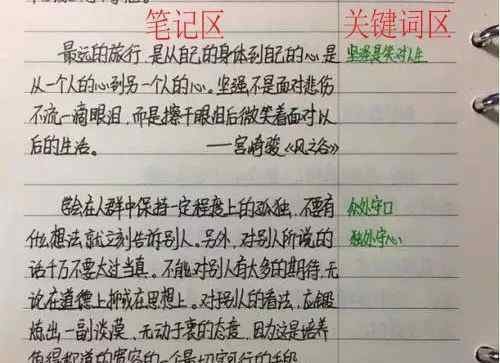 笔记区 关键词区
最远的旅行,是从自己的身体到自己的心,是 坚强是笑对人生
从一个人的心到另一个人的心。坚强不是面对悲伤
不流一滴眼泪,而是擦干眼泪后微笑着面对以
后的生活。 ——宫崎骏《风之谷》
学会在人群中保持一定程度上的孤独,不要有 众处守口
什么想法就立刻告诉别人。另外,对别人所说的 独处守心
话千万不要太过当真。不能对别人有太多的期待,无
论在道德上抑或在思想上。对于别人的看法,应锻
炼出一副淡漠、无动于衷的态度,因为这是培养
值得称道的宽容的一个最切实可行的手段